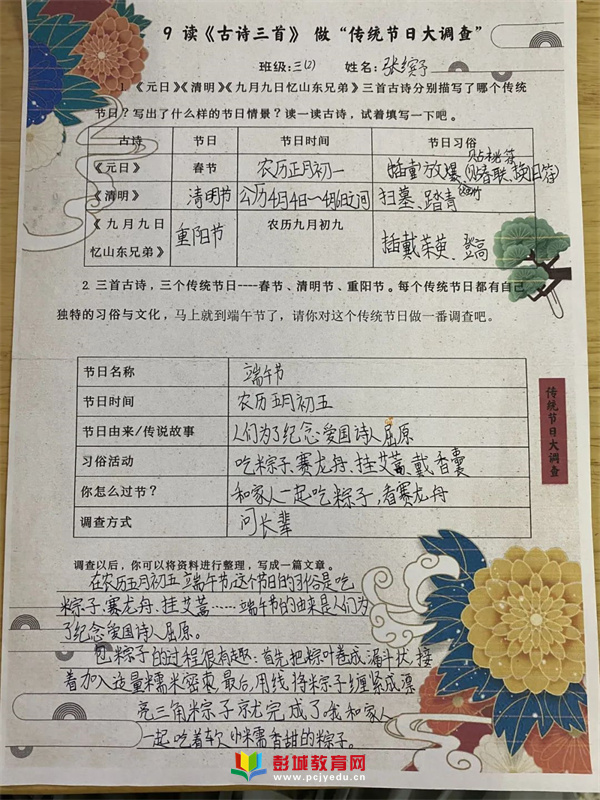 9 读《古诗三首》 做“传统节日大调查”
班级:三(2) 姓名:张缤予
1.《元日》《清明》《九月九日忆山东兄弟》三首古诗分别描写了哪个传统
节日?写出了什么样的节日情景?读一读古诗,试着填写一下吧。
古诗 节日 节日时间 节日习俗
《元日》 春节 农历正月初一 放爆 贴桃符 (贴春联、换旧符)
《清明》 清明节 公历4月4日~4月6日之间 扫墓、踏青
《九月九日 重阳节 农历九月初九 插戴茱萸、登高
忆山东兄弟》
2.三首古诗,三个传统节日----春节、清明节、重阳节。每个传统节日都有自己
独特的习俗与文化,马上就到端午节了,请你对这个传统节日做一番调查吧。
节日名称 端午节
节日时间 农历五月初五
节日由来/传说故事 人们为了纪念爱国诗人屈原
习俗活动 吃粽子、赛龙舟、挂艾蒿、戴香囊
你怎么过节? 和家人一起吃粽子,看赛龙舟
调查方式 问长辈
传统节日大调查
调查以后,你可以将资料进行整理,写成一篇文章。
在农历五月初五端午节,这个节日的习俗是吃
粽子、赛龙舟、挂艾蒿……端午节的由来是人们为
了纪念爱国诗人屈原。
包粽子的过程很有趣:首先把粽叶卷成漏斗状,接
着加入适量糯米密枣,最后,用线将粽子缠紧成漂
亮三角粽子就完成了。我和家人
一起吃着软小糯香甜的粽子。
彭城教育网
www.pcjyedu.cn